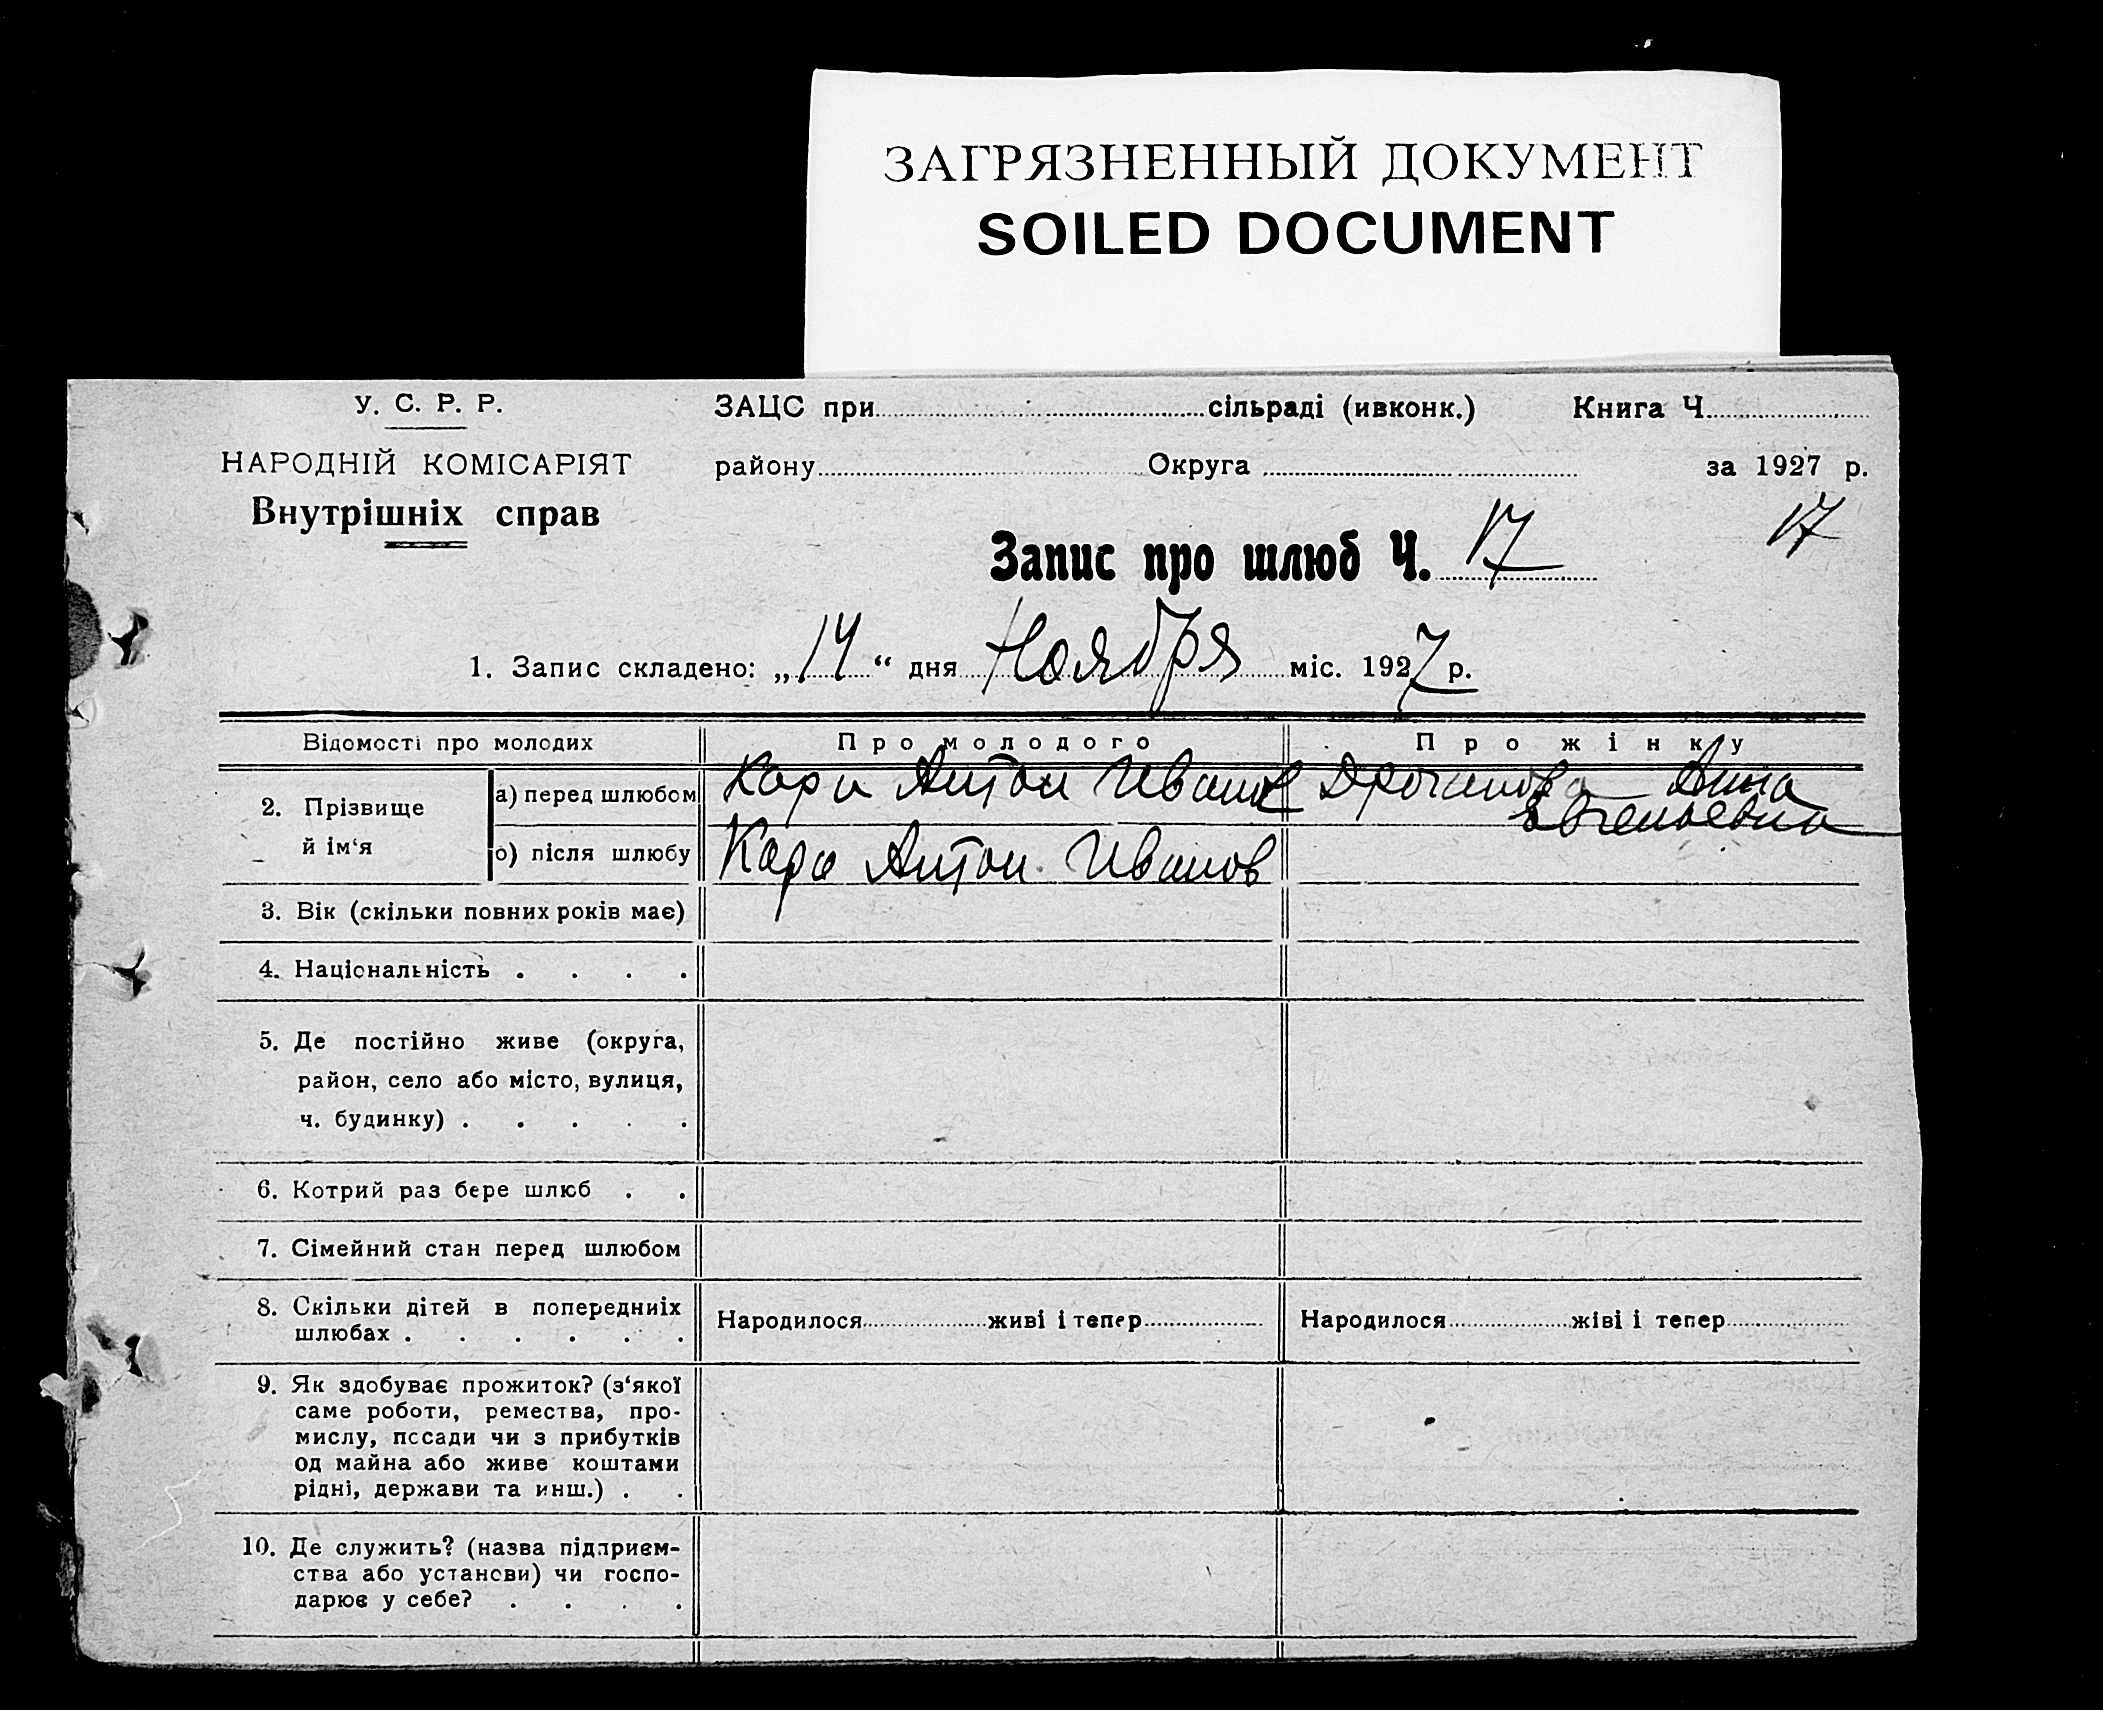 ЗАГРЯЗНЕННЫЙ ДОКУМЕНТ
SOILED DOCUMENT
У. С. Р. Р.
НАРОДНІЙ КОМІСАРІЯТ
Внутрішніх справ
ЗАЦС при сільраді (ивконк.) Книга Ч.
району Округа за 1927 р.
17
Запис про шлюб Ч. 17
1. Запис складено: „14“ дня Ноября міс. 1927 р.
Відомості про молодих Про молодого Про жінку
2. Прізвище й ім‘я
а) перед шлюбом Кара Антон Иванов Анна
Евгеньевна
о) після шлюбу Кара Антон Иванов
3. Вік (скільки повних років має)
4. Національність . . . .
5. Де постійно живе (округа,
район, село або місто, вулиця,
ч. будинку) . . . . .
6. Котрий раз бере шлюб . .
7. Сімейний стан перед шлюбом
8. Скільки дітей в попередниіх
шлюбах . . . . . .
Народилося живі і тепер Народилося жіві і тепер
9. Як здобуває прожиток? (з‘якої
саме роботи, ремества, про-
мислу, посади чи з прибутків
од майна або живе коштами
рідні, держави та инш.) . .
10. Де служить? (назва підприєм-
ства або установи) чи госпо-
дарює у себе? . . . .